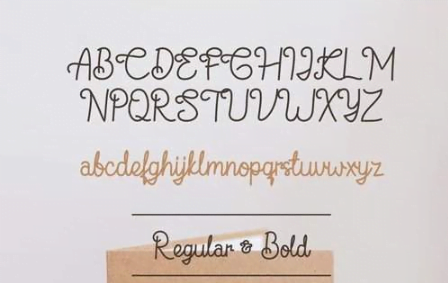 ABCDEFGHIJKLM
NPQRSTUVWXYZ
abcdefghijklmnopqrstuvwxyz
Regular & Bold